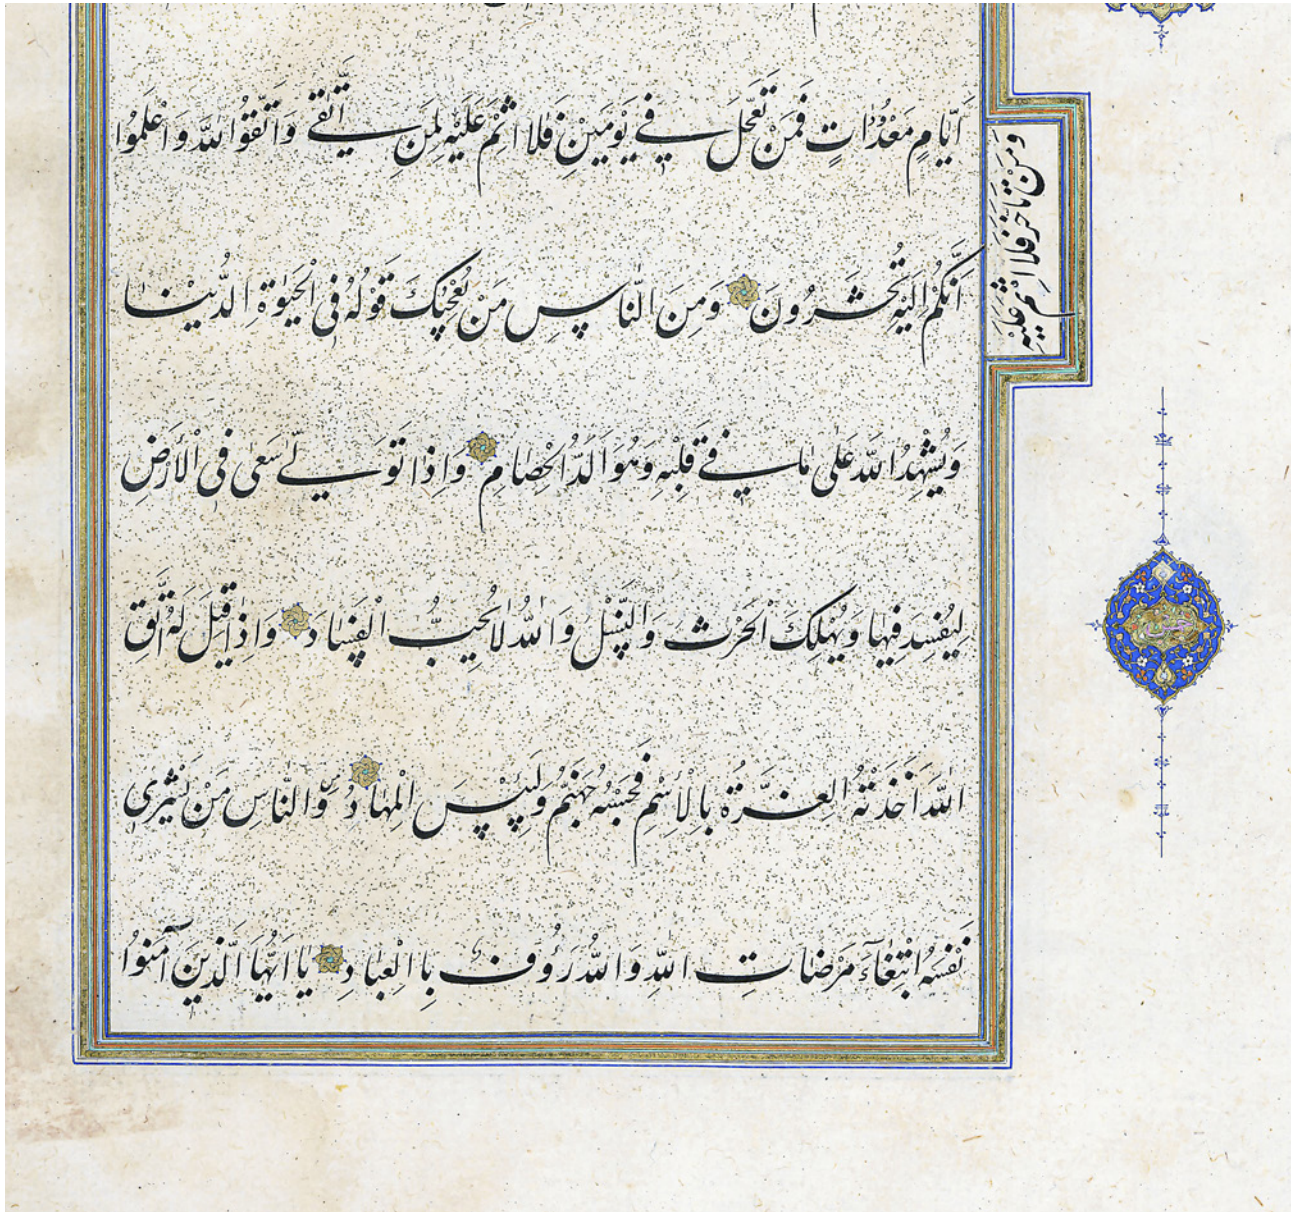 اَيّامٍ مَعْدُدٰاتٍ فَمَنْ تَعَجَّلَ فِي يَوْمَيْنِ فَلٰا اثْمَ عَلَيْهِ لِمَنِ اتَّقٰي وَاتَّقُوا اللهَ وَاعْلَمُوا
وَمَنْ تَاَخَّرَ فَلَا اِثْمَ عَلَيْهِ
اَنَّكُمْ اِلَيْهِ تُحْشَرُونَ وَمِنَ النّٰاسِ مَنْ يُعْجِبُكَ قَوْلُهُ فِى الْحَيٰوةِ الدُّنْيٰا
وَيُشْهِدُ اللهَ عَلٰى مٰا فِي قَلْبِهِ وَهُوَ اَلَدُّ الْخِصٰامِ وَاِذٰا تَوَلّٰي سَعٰى فِى الْاَرْضِ
لِيُفْسِدَ فِيهٰا وَيُهْلِكَ الْحَرْثَ وَالنَّسْلَ وَاللهُ لٰا يُحِبُّ الْفَسٰادَ وَاِذٰا قِيلَ لَهُ اتَّقِ
اللهَ اَخَذَتْهُ الْعِزَّةُ بِالْاِثْمِ فَحَسْبُهُ جَهَنَّمُ وَلَبِئْسَ الْمِهٰادُ وَالنّٰاسِ مَنْ يَشْرِى
نَفْسَهُ ابْتِغٰاۤءَ مَرْضٰاتِ اللهِ وَاللهُ رَؤُوفٌ بِاالْعِبٰادِ يٰا اَيُّهَا الَّذِينَ آمَنُوا